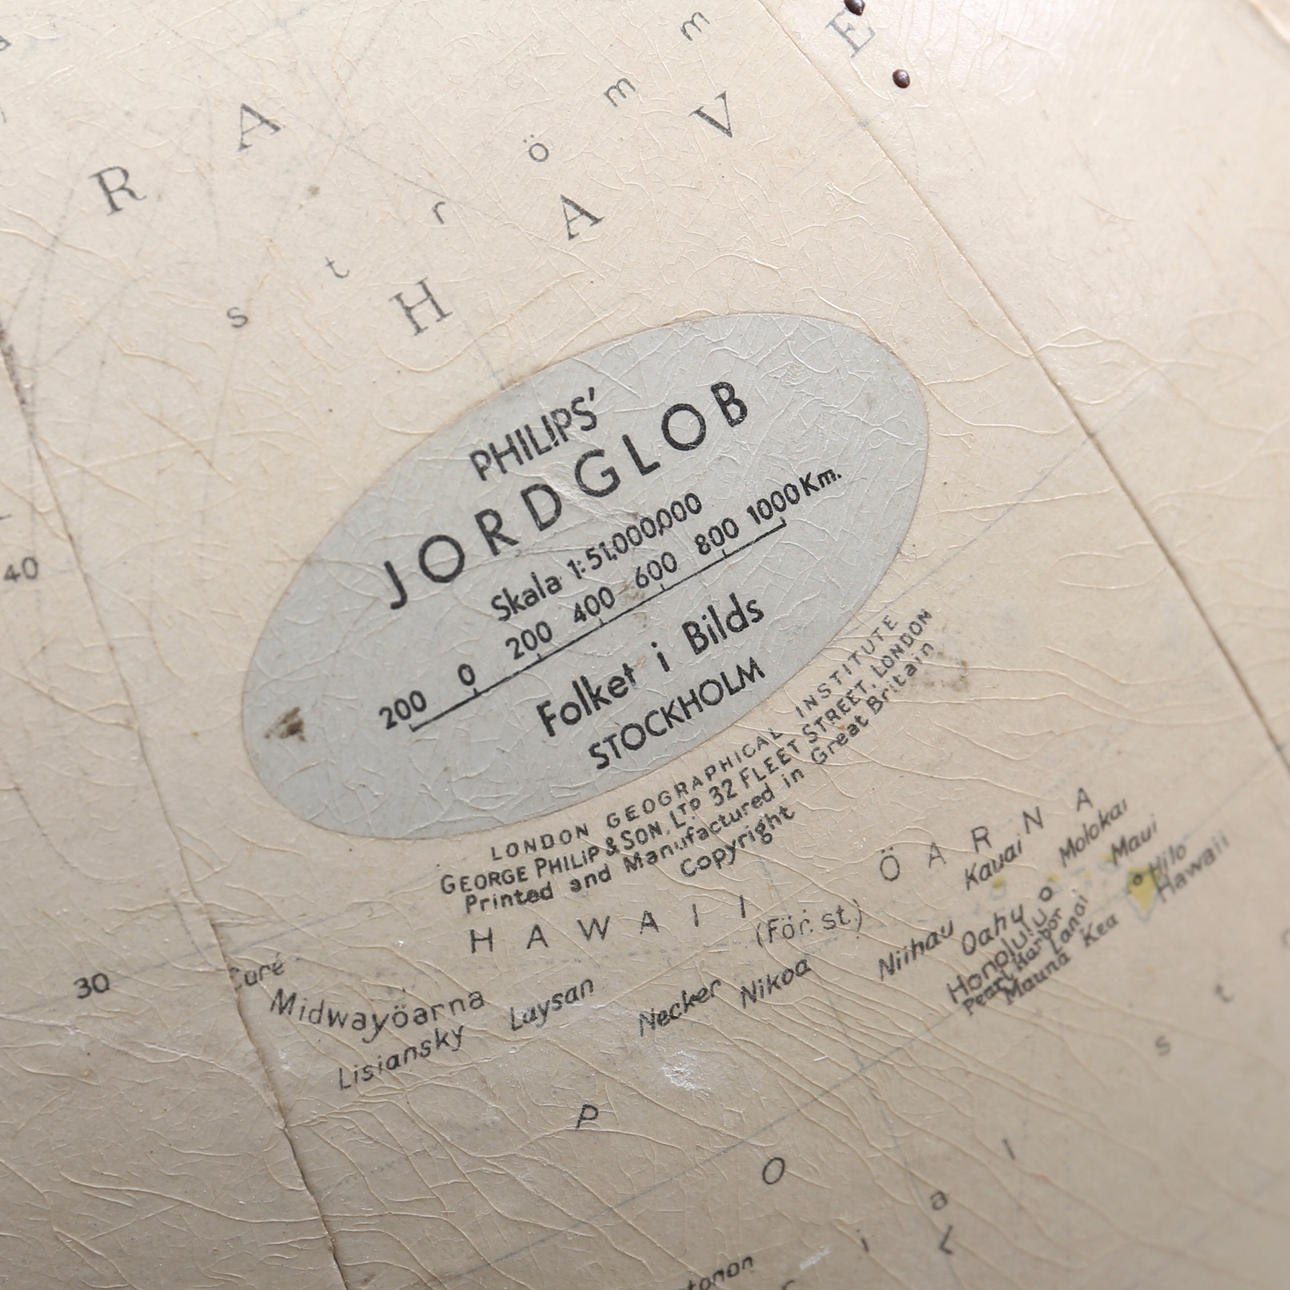 R A
s t r ö m m
H A V E
PHILIPS'
JORDGLOB
Skala 1:51,000,000
200 0 200 400 600 800 1000 Km.
Folket i Bilds
STOCKHOLM
LONDON GEOGRAPHICAL INSTITUTE
GEORGE PHILIP & SON, LTD 32 FLEET STREET, LONDON
Printed and Manufactured in Great Britain
Copyright
40
30
HAWAII ÖARNA
(För. st.)
Curé
Midwayöarna
Lisiansky
Laysan
Necker
Nikoa
Niihau
Kauai
Oahu
Honolulu
Pearl Harbor
Molokai
Lanai
Maui
Mauna Kea
Hilo
Hawaii
P O L
i a l
s t